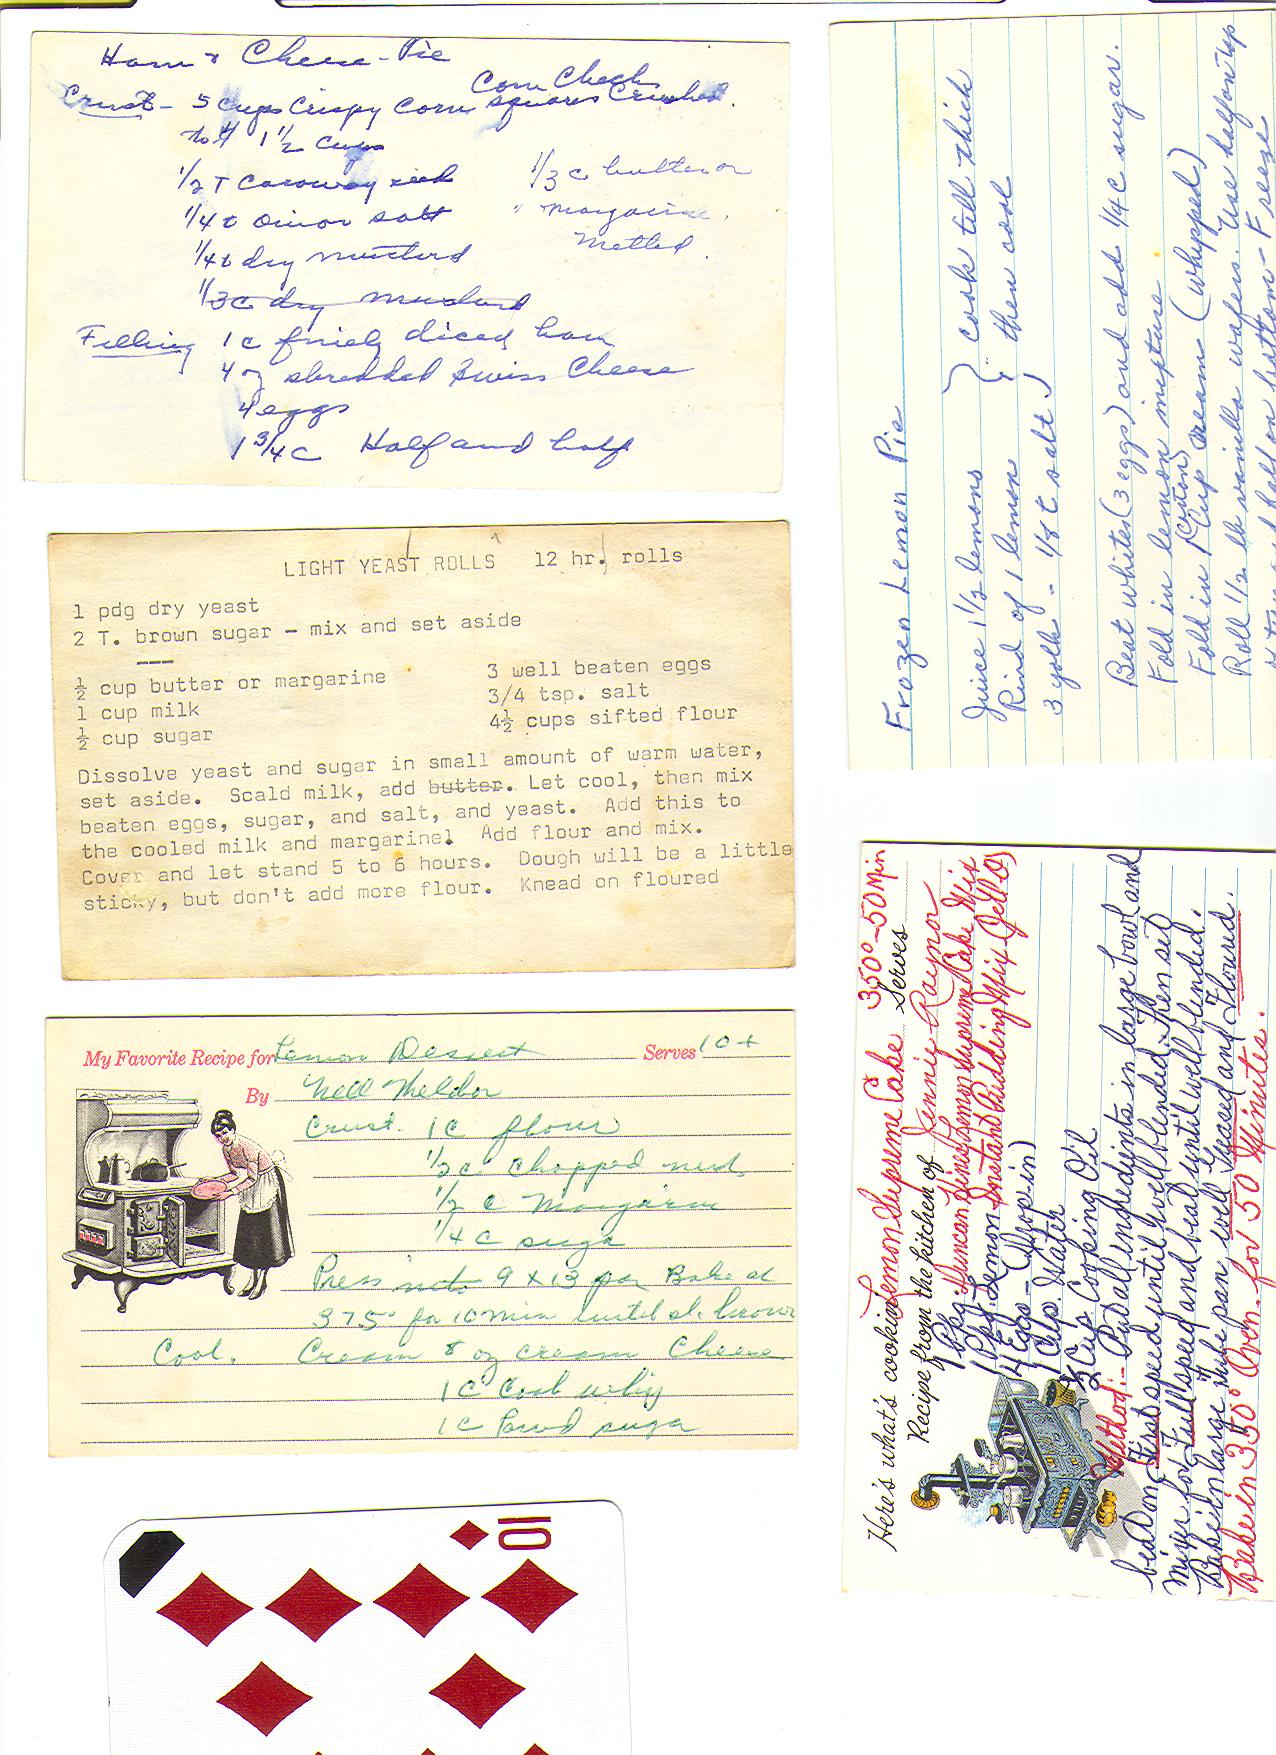 Ham & Cheese-Pie
Corn Checks
Crust- 5 cups Crispy Corn squares Crushed.
to 1 1/2 cups
1/2 T Caraway seed
1/3 c butter or
1/4 t Onion salt
" margarine.
Melted.
1/4 t dry mustard
1/3 c dry mustard
Filling 1 c finely diced ham
4 oz shredded Swiss Cheese
4 eggs
1 3/4 c Half and half
LIGHT YEAST ROLLS 12 hr. rolls
1 pdg dry yeast
2 T. brown sugar - mix and set aside
½ cup butter or margarine
1 cup milk
½ cup sugar
3 well beaten eggs
3/4 tsp. salt
4½ cups sifted flour
Dissolve yeast and sugar in small amount of warm water,
set aside. Scald milk, add butter. Let cool, then mix
beaten eggs, sugar, and salt, and yeast. Add this to
the cooled milk and margarine. Add flour and mix.
Cover and let stand 5 to 6 hours. Dough will be a little
sticky, but don't add more flour. Knead on floured
My Favorite Recipe for Lemon Dessert Serves 10+
By Nell
Crust. 1 c flour
1/2 c Chopped nuts
1/2 c Margarine
1/4 c sugar
Press into 9 X 13 pan Bake at
375° for 10 min until sl. brown
Cool. Cream 8 oz cream Cheese
1 C Cool whip
1 c Powd sugar
10
Frozen Lemon Pie
Juice 1 1/2 lemons } cook till thick
Rind of 1 lemon " then cool
3 yolks - 1/8 t salt
Beat whites (3 eggs) and add 1/4 c sugar.
Fold in lemon mixture
Fold in 1 Cup cream (whipped)
(carton)
Roll 1/2 lb vanilla wafers. Use half on top
half on bottom - Freeze
Here's what's cookin' Lemon Supreme Cake 350° - 50 Min
Serves
Recipe from the kitchen of Jennie Raynor
1 Pkg. Duncan Hines Lemon Supreme Cake Mix
1 Pkg. Lemon Instant Pudding Mix (Jello)
4 Eggs - (drop in)
1 Cup Water
1/2 Cup Cooking Oil
Method:- Put all ingredients in large bowl and
beat on first speed until well blended, then set
mixer for full speed and beat until well blended.
Bake in large tube pan well greased and floured.
Bake in 350° Oven for 50 Minutes.